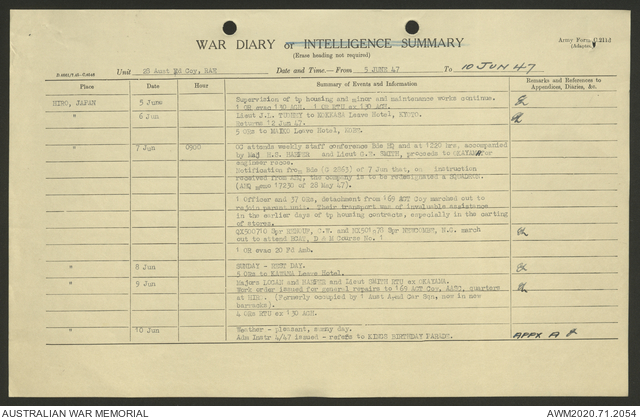 WAR DIARY or INTELLIGENCE SUMMARY
(Erase heading not required)
Army Form C 2118
(Adapted)
Unit 28 Aust Fd Coy, RAE Date and Time—From 5 JUNE 47 To 10 JUN 47
Place Date Hour Summary of Events and Information Remarks and References to Appendices, Diaries, &c.
HIRO, JAPAN 5 June Supervision of tp housing and minor and maintenance works continue.
1 OR evac 130 AGH. 1 OR RTU ex 130 AGH.
" 6 Jun Lieut J.L. to KOKKASA Leave Hotel, KYOTO.
Returns 12 Jun 47.
5 ORs to MAIKO Leave Hotel, KOBE.
" 7 Jun 0900 OC attends weekly staff conference Bde HQ and at 1220 hrs, accompanied
by Maj H.S. HARPER and Lieut G.R. SMITH, proceeds to OKAYAMA for
engineer recce.
Notification from Bde (O 2863) of 7 Jun that, on instruction
received from AHQ, the company is to be redesignated a SQUADRON.
(AHQ 17230 of 28 May 47).
1 Officer and 37 ORs, detachment from 169 AGT Coy marched out to
rejoin parent unit. Their transport was of invaluable assistance
in the earlier days of tp housing contracts, especially in the carting
of stores.
QX500710 Spr C.W. and Spr N.S. march
out to attend BCAT, D & M Course No. 1
1 OR evac 20 Fd Amb.
" 8 Jun SUNDAY - REST DAY.
5 ORs to KAWANA Leave Hotel.
" 9 Jun Majors LOGAN and HARPER and Lieut SMITH RTU ex OKAYAMA.
Work order issued for general repairs to 169 AGT Coy, AASC, quarters
at HIRO. (Formerly occupied by 1 Aust Armd Car Sqn, now in new
barracks).
4 ORs RTU ex 130 AGH.
" 10 Jun Weather - pleasant, sunny day.
Adm Instr 4/47 issued - refers to KINGS BIRTHDAY PARADE. APPX A
AUSTRALIAN WAR MEMORIAL
AWM2020.71.2054